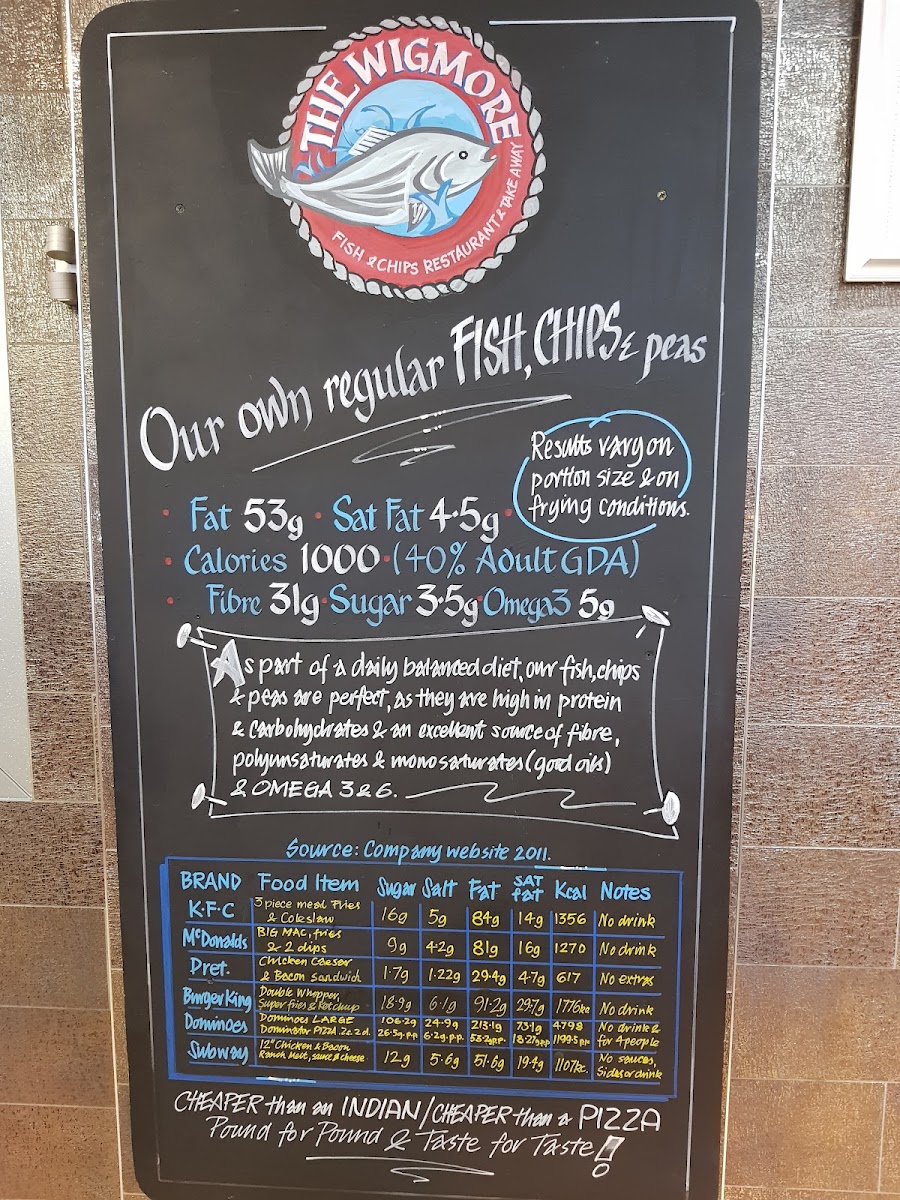 THE WIGMORE
FISH & CHIPS RESTAURANT & TAKE AWAY
Our own regular FISH, CHIPS & peas
Results vary on
portion size & on
frying conditions.
• Fat 53g • Sat Fat 4.5g •
• Calories 1000 • (40% Adult GDA)
• Fibre 31g • Sugar 3.5g • Omega3 5g
As part of a daily balanced diet, our fish, chips
& peas are perfect, as they are high in protein
& carbohydrates & an excellent source of fibre,
polyunsaturates & monosaturates (good oils)
& OMEGA 3 & 6.
Source: Company website 2011.
BRAND Food Item Sugar Salt Fat SAT fat Kcal Notes
K.F.C 3 piece meal Fries & Coleslaw 16g 5g 84g 14g 1356 No drink
McDonalds BIG MAC, fries & 2 dips 9g 4.2g 81g 16g 1270 No drink
Pret. Chicken Caeser & Bacon Sandwich 1.7g 1.22g 29.4g 4.7g 617 No extras
Burger King Double Whopper, Super fries & Ketchup 18.9g 6.1g 91.2g 29.7g 1776 No drink
Dominoes Dominoes LARGE Dominator PIZZA 106.2g 26.5g.p.p. 24.9g 6.2g.p.p. 213.1g 73.1g 4798 1199.5 pp No drink & for 4 people
Subway 12" Chicken & Bacon Ranch Melt, sauce & cheese 12g 5.6g 51.6g 19.4g 1107kc. No sauces, Sides or drink
CHEAPER than an INDIAN/CHEAPER than a PIZZA
Pound for Pound & Taste for Taste!